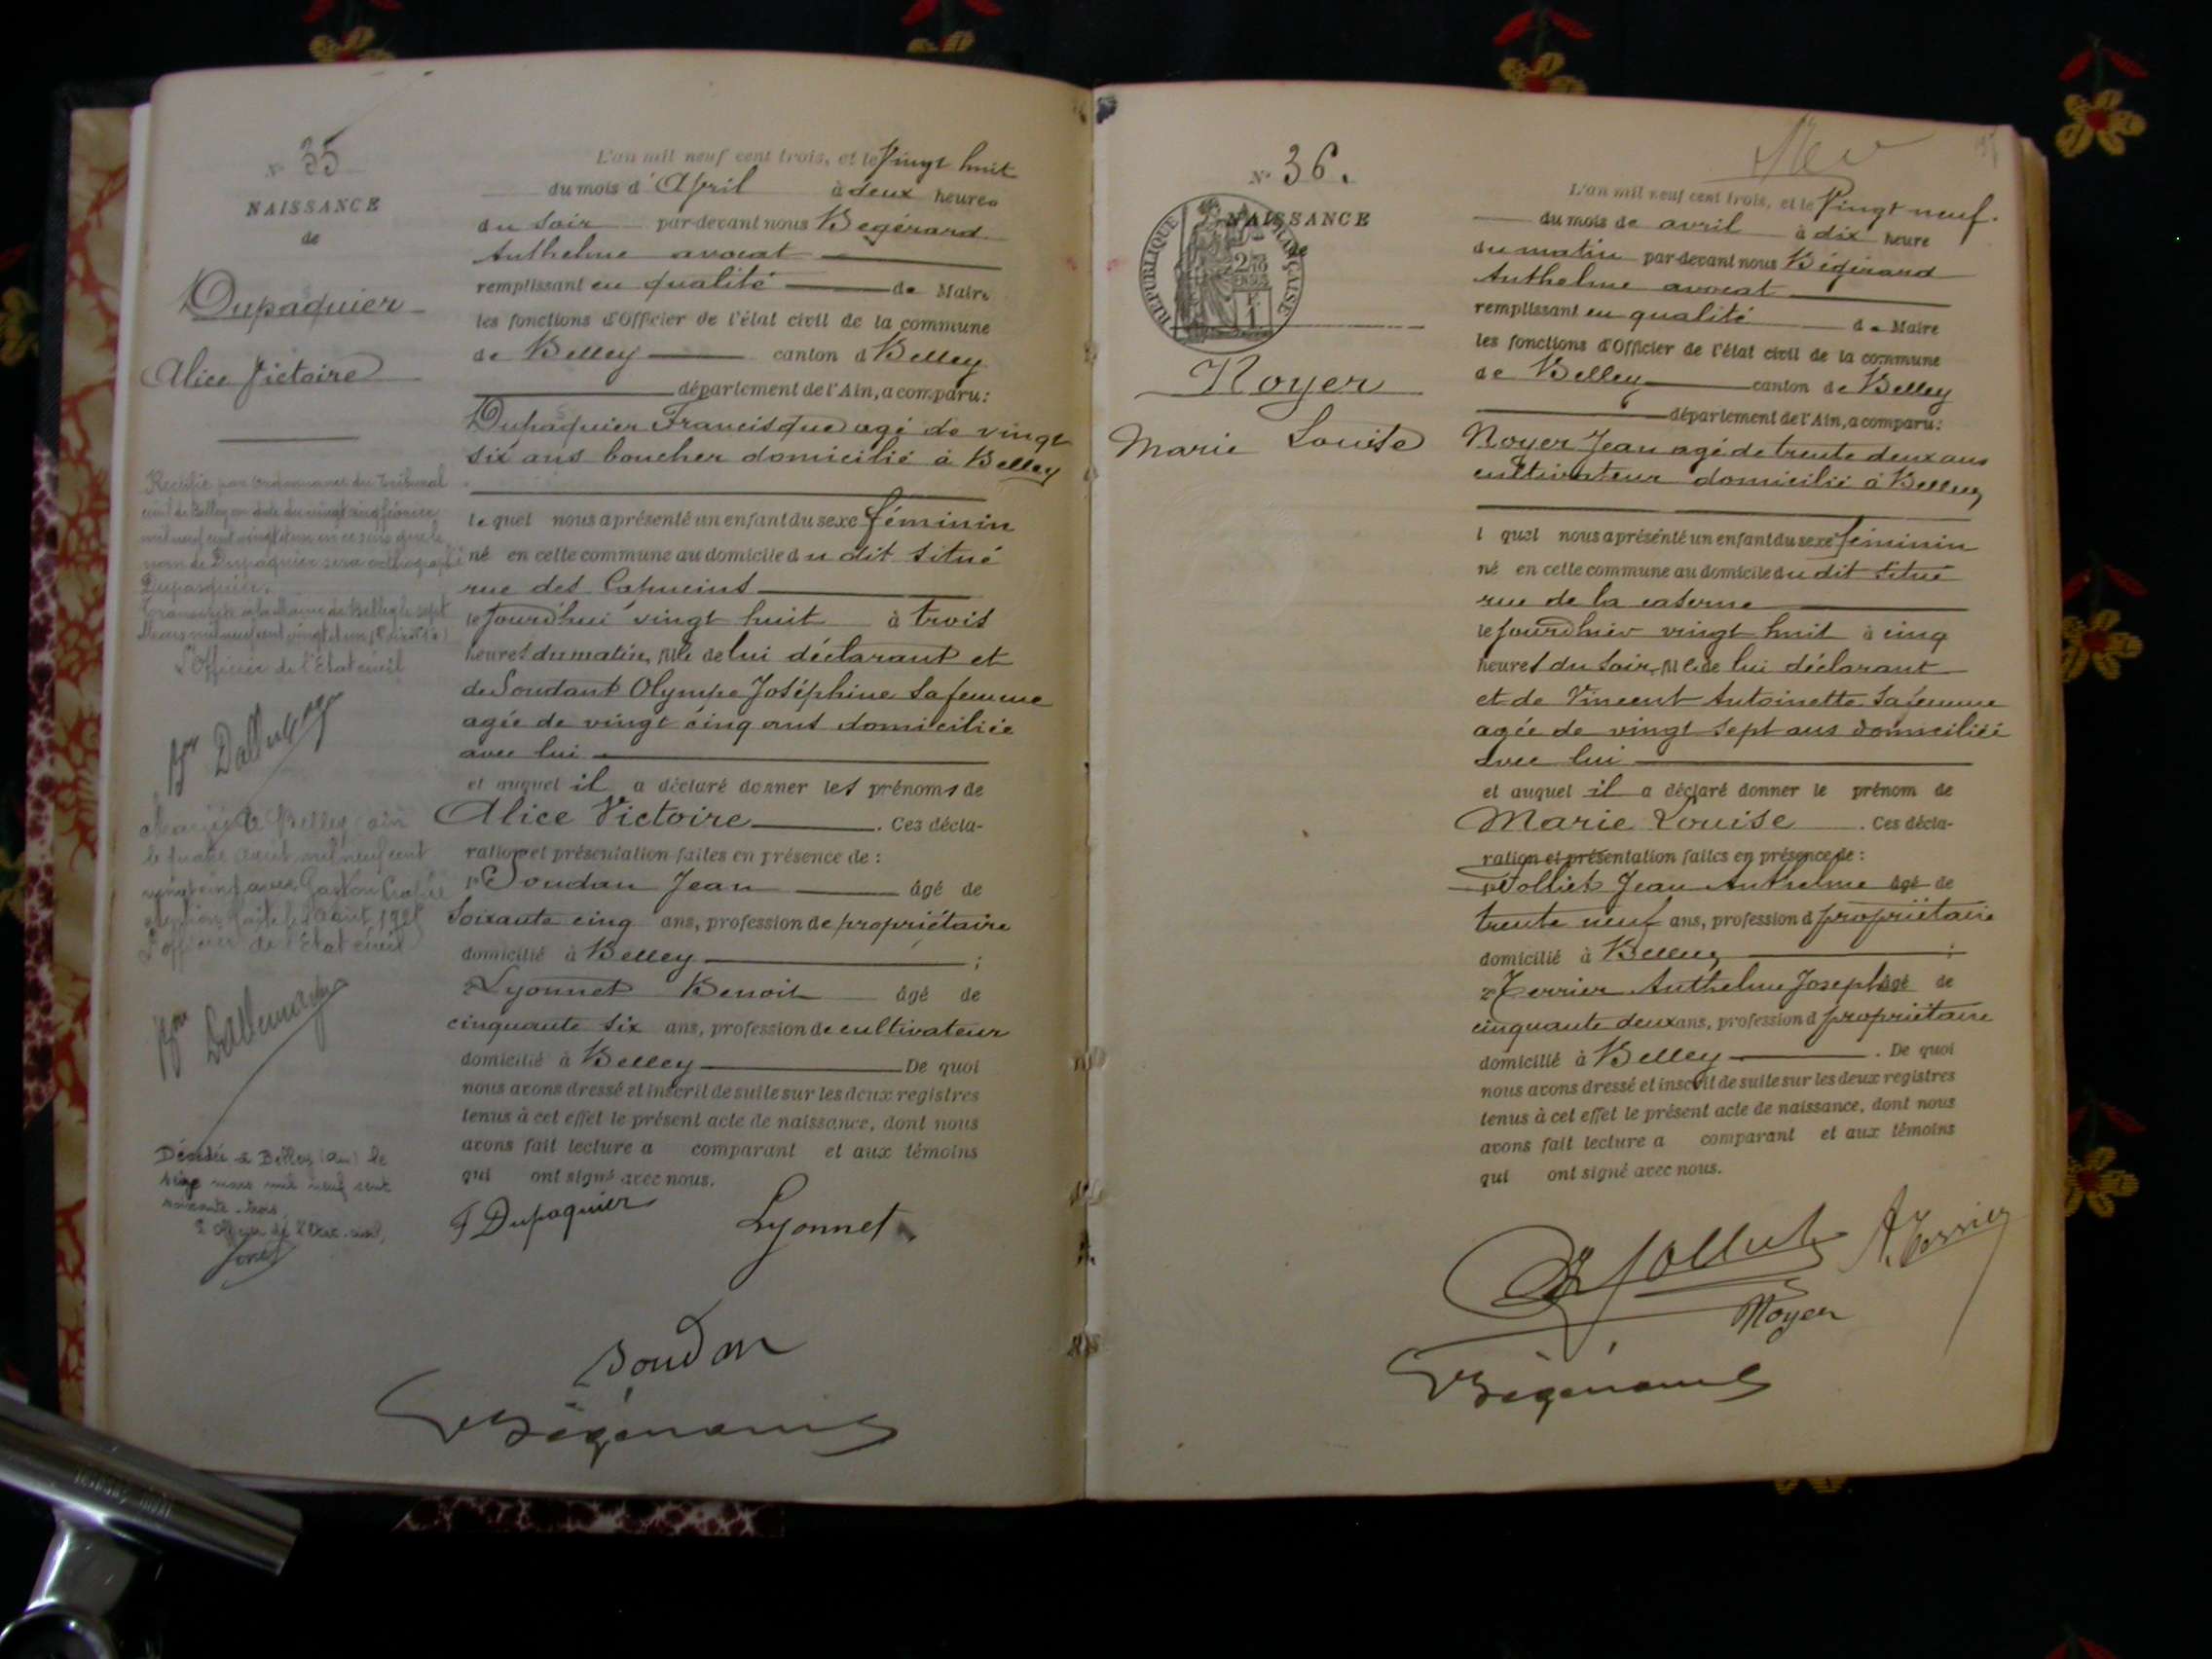 N° 35
NAISSANCE
de
Dupaquier
Alice Victoire
Rectifié par ordonnance du Tribunal
civil de Belley en date du vingt cinq février
mil neuf cent vingt et un en ce sens que le
nom de Dupaquier sera orthographié
Dupasquier.
Transcrit à la Mairie de Belley le sept
Mars mil neuf cent vingt et un
L'Officier de l'Etat civil
Mariée à Belley (ain)
le août mil neuf cent
vingt cinq avec Gaston
août 1925
L'officier de l'Etat civil
Décédée à Belley (Ain) le
mars mil neuf cent
soixante-trois
L'Officier de l'Etat-civil,
L'an mil neuf cent trois, et le Vingt huit
du mois d'April à deux heures
du soir par-devant nous Bégérard
Anthelme avocat
remplissant en qualité de Maire
les fonctions d'Officier de l'état civil de la commune
de Belley canton d Belley
département de l'Ain, a comparu:
Dupaquier Francisque agé de vingt
six ans boucher domicilié à Belley
lequel nous a présenté un enfant du sexe féminin
né en cette commune au domicile du dit situé
rue des Capucins
le jourd'hui vingt huit à trois
heures du matin, fille de lui déclarant et
de Soudant Olympe Joséphine sa femme
agée de vingt cinq ans domiciliée
avec lui
et auquel il a déclaré donner les prénoms de
Alice Victoire. Ces décla-
ration et présentation faites en présence de :
1° Soudan Jean âgé de
soixante cinq ans, profession de propriétaire
domicilié à Belley ;
2° Lyonnet Benoit âgé de
cinquante six ans, profession de cultivateur
domicilié à Belley De quoi
nous avons dressé et inscrit de suite sur les deux registres
tenus à cet effet le présent acte de naissance, dont nous
avons fait lecture a comparant et aux témoins
qui ont signé avec nous.
F Dupaquier Lyonnet
Soudan
Bégérard
N° 36.
NAISSANCE
de
REPUBLIQUE FRANÇAISE
Noyer
Marie Louise
L'an mil neuf cent trois, et le Vingt neuf.
du mois de avril à dix heure
du matin par-devant nous Bégérard
Anthelme avocat
remplissant en qualité de Maire
les fonctions d'Officier de l'état civil de la commune
de Belley canton de Belley
département de l'Ain, a comparu:
Noyer Jean agé de trente deux ans
cultivateur domicilié à Belley
l quel nous a présenté un enfant du sexe féminin
né en cette commune au domicile du dit situé
rue de la caserne
le jourd'hier vingt huit à cinq
heures du soir, fille de lui déclarant
et de Vincent Antoinette sa femme
agée de vingt sept ans domiciliée
avec lui
et auquel il a déclaré donner le prénom de
Marie Louise. Ces décla-
ration et présentation faites en présence de :
1° Jolliet Jean Anthelme âgé de
trente neuf ans, profession d propriétaire
domicilié à Belley ;
2° Perrier Anthelme Joseph âgé de
cinquante deux ans, profession d propriétaire
domicilié à Belley. De quoi
nous avons dressé et inscrit de suite sur les deux registres
tenus à cet effet le présent acte de naissance, dont nous
avons fait lecture a comparant et aux témoins
qui ont signé avec nous.
Noyer
Bégérard